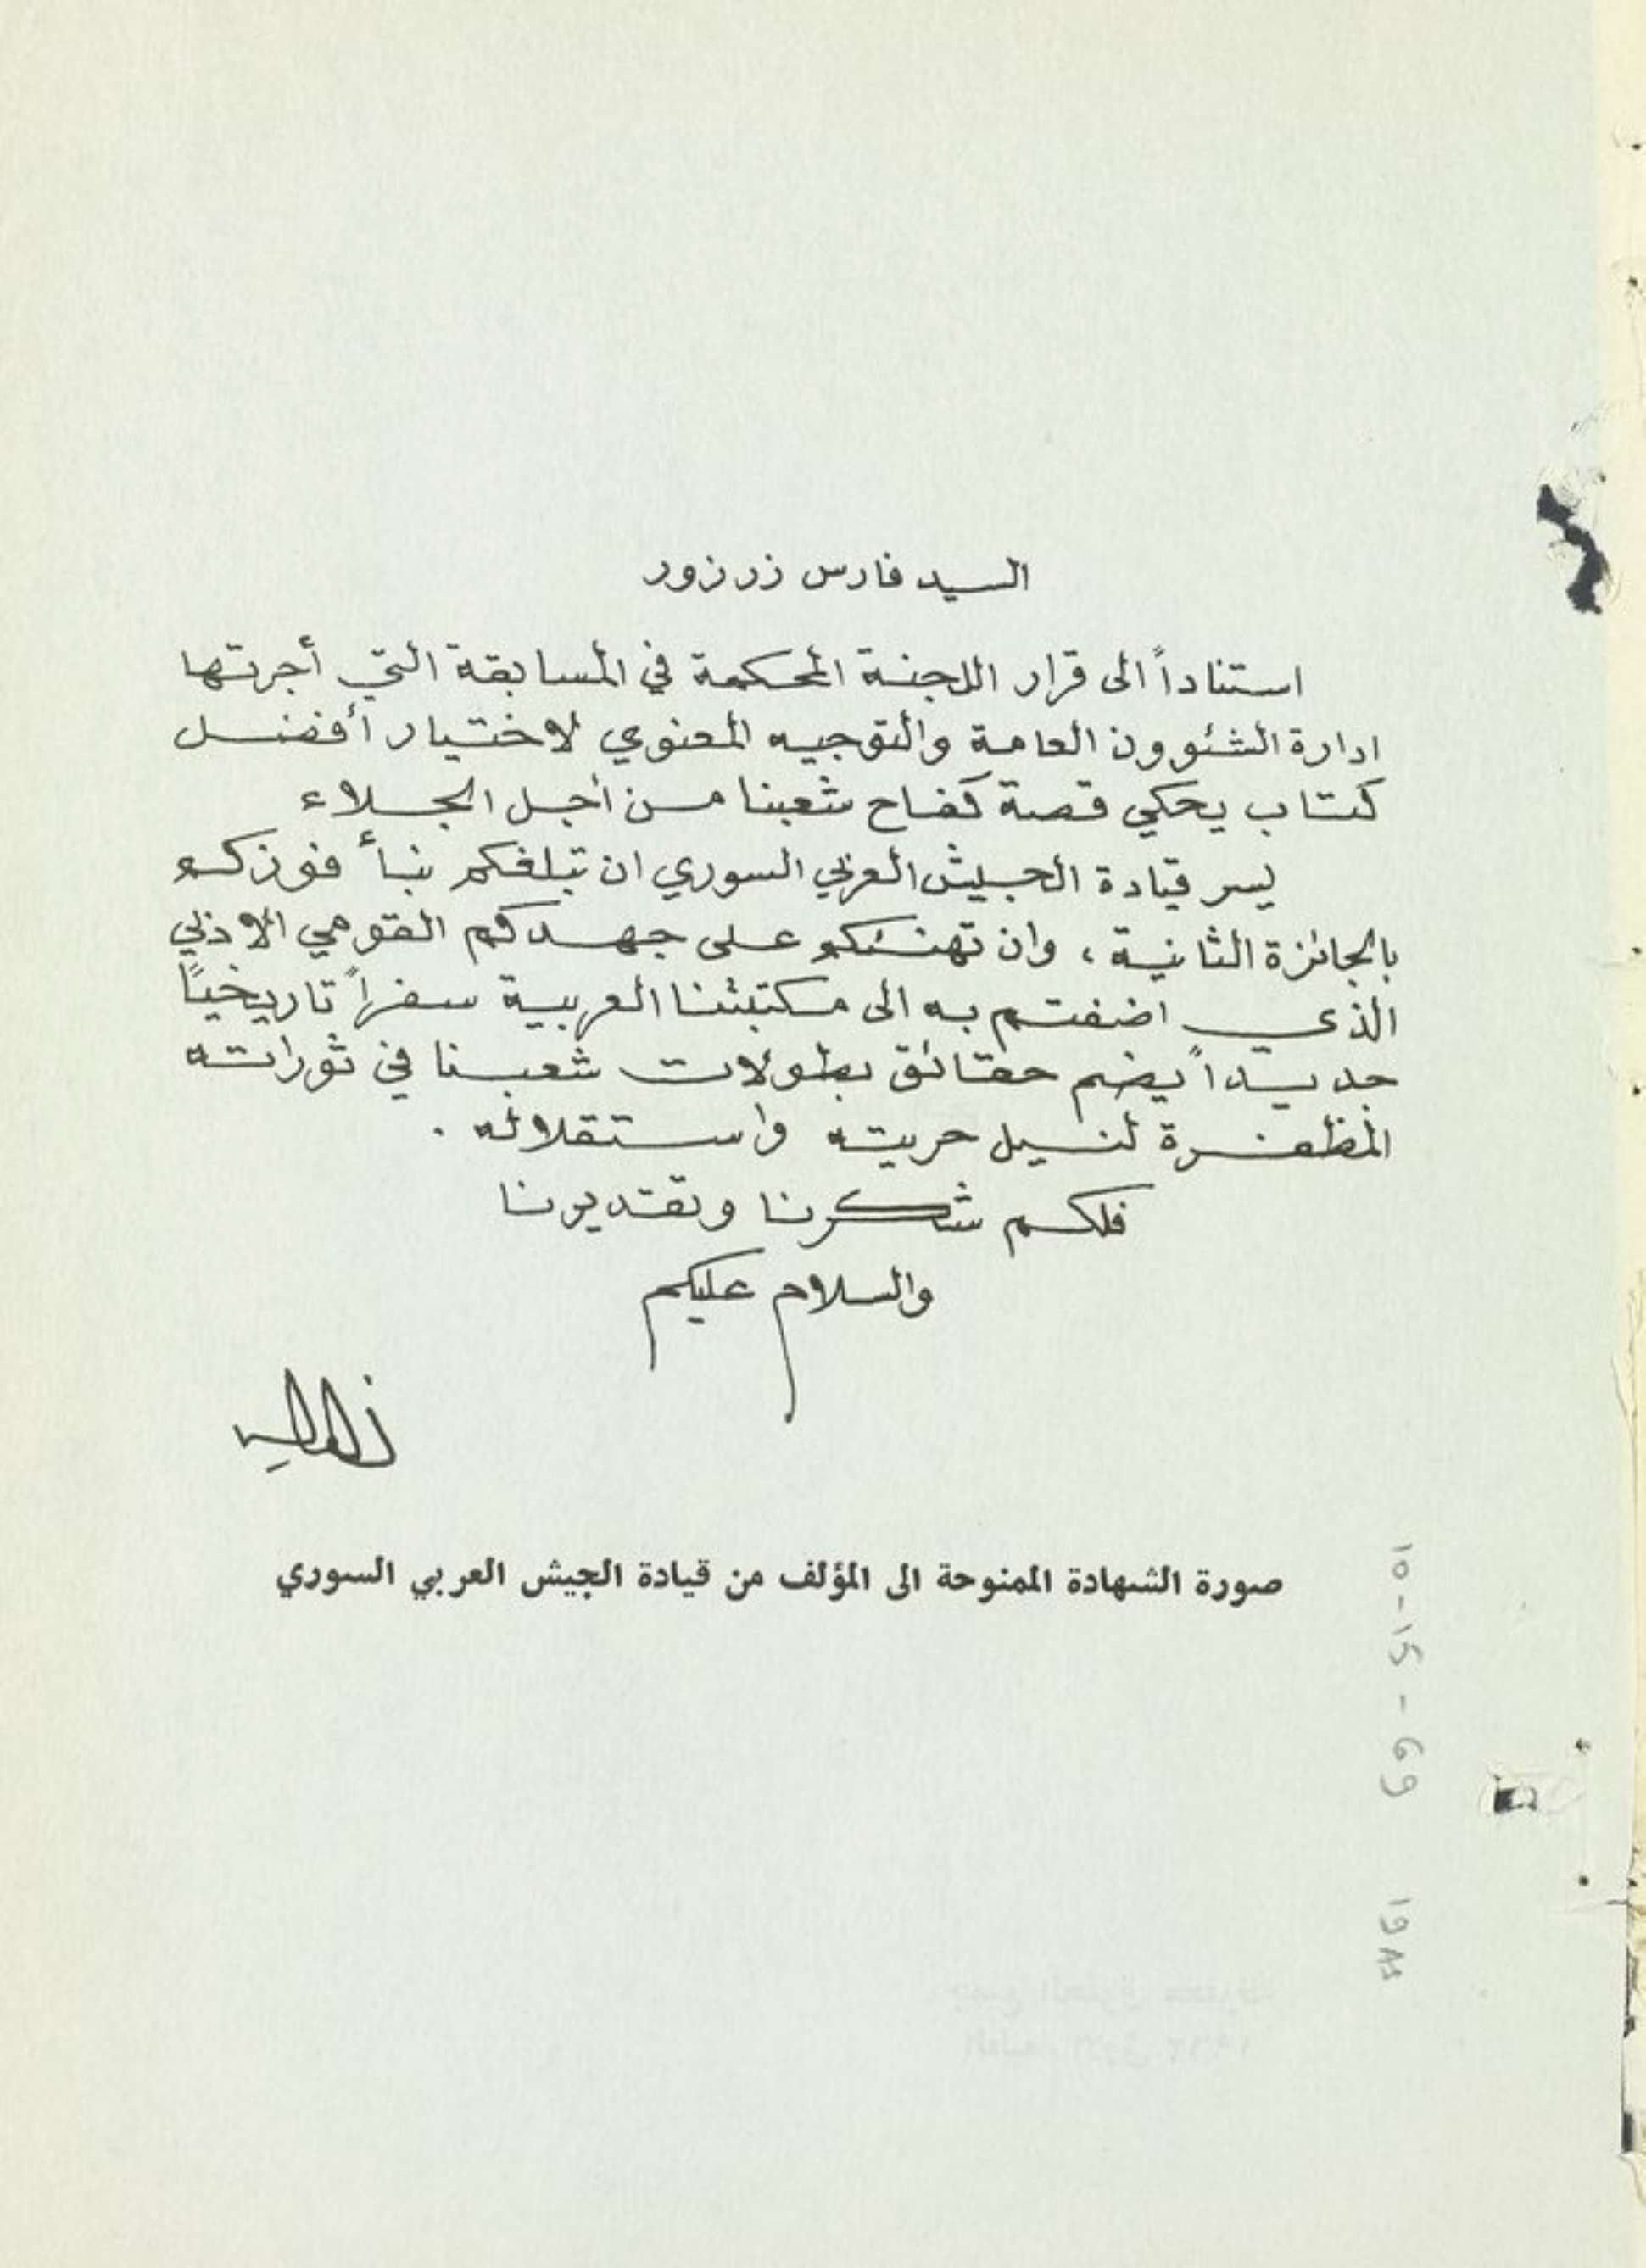 السيد فارس زرزور
استناداً الى قرار اللجنة المحكمة في المسابقة التي أجرتها
ادارة الشئوون العامة والتوجيه المعنوي لاختيار أفضل
كتاب يحكي قصة كفاح شعبنا من أجل الجلاء
يسر قيادة الجيش العربي السوري ان تبلغكم نبأ فوزكم
بالجائزة الثانية ، وان تهنئكم على جهدكم القومي الادبي
الذي اضفتم به الى مكتبتنا العربية سفراً تاريخياً
جديداً يضم حقائق بطولات شعبنا في ثوراته
المظفرة لنيل حريته واستقلاله .
فلكم شكرنا وتقديرنا
والسلام عليكم
صورة الشهادة الممنوحة الى المؤلف من قيادة الجيش العربي السوري
10-15-69